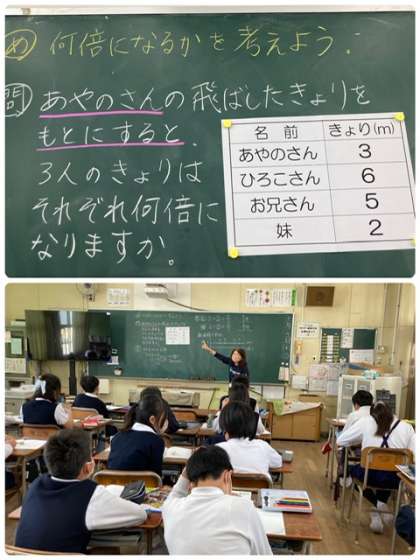 め 何倍になるかを考えよう。
問 あやのさんの飛ばしたきょりを
もとにすると、
3人のきょりは
それぞれ何倍に
なりますか。
名前 きょり(m)
あやのさん 3
ひろこさん 6
お兄さん 5
妹 2